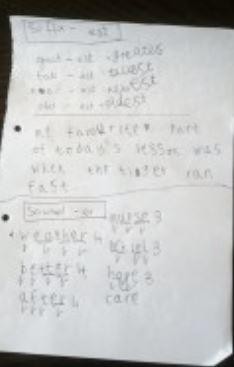 Suffix - est
great - est - greatest
- est -
- est -
old - est - oldest
My favourite part
of today's lesson was
when the tiger ran
fast
Sound - er
nurse 3
weather 4
better 4
here 3
after 4
care